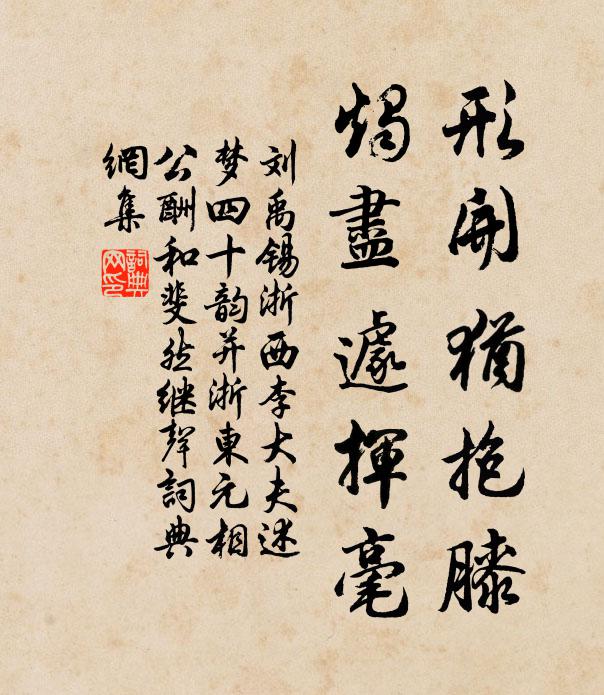 形開猶抱膝
燭盡遽揮毫
刘禹锡浙西李大夫述
梦四十韵并浙東元相
公酬和斐然继聲詞典
網集
詞典
网印